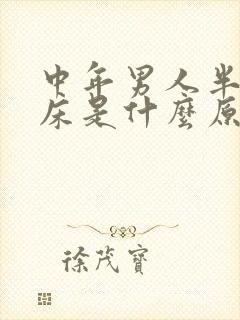 中年男人半
床是什麼原
徐茂寶